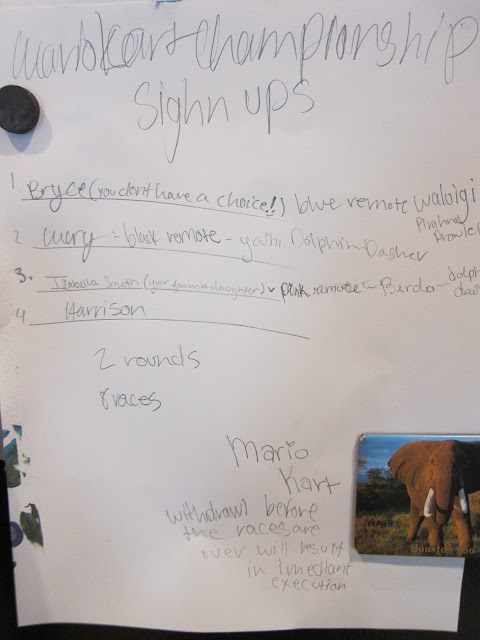 mariokart championship
sighn ups
1 Bryce (you dont have a choice!!) blue remote waloigi
2 = black remote - yoshi Dolphin Dasher
3. Izabala Smith (your favorite daughter) pink remote - Berdo - dolph
das
4 Harrison
2 rounds
8 races
Mario
Kart
withdrawl before
the races are
over will result
in Imediant
execution
Houston Zoo